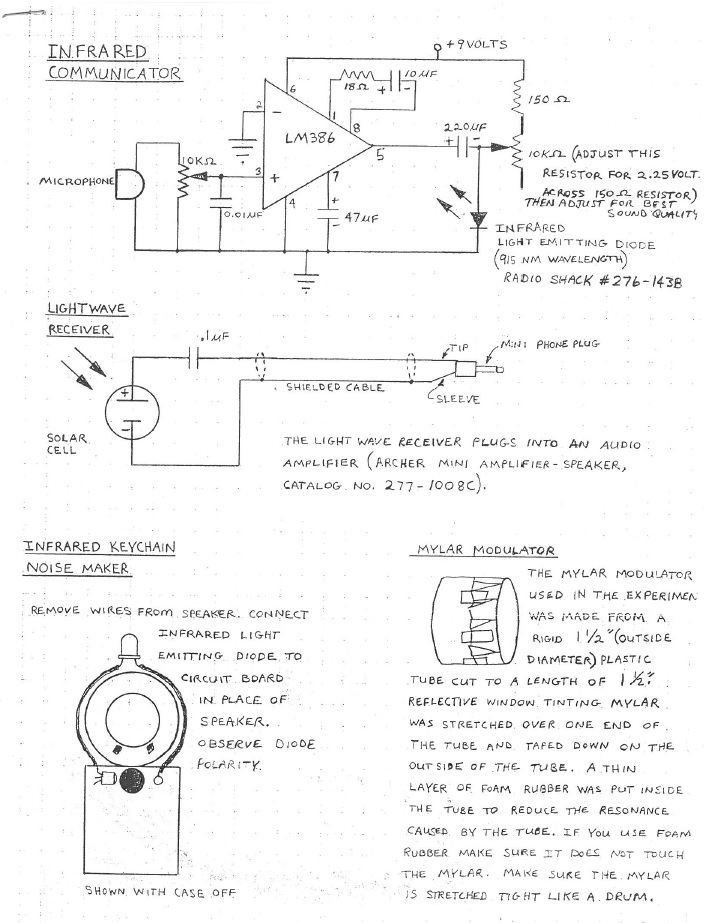 INFRARED
COMMUNICATOR
+9 VOLTS
6
18Ω
+ 10 μF -
150 Ω
2
-
1
8
LM386
220μF
+ -
5
10KΩ
3
+
7
4
MICROPHONE
0.01μF
+
-
47μF
10KΩ (ADJUST THIS
RESISTOR FOR 2.25 VOLT.
ACROSS 150Ω RESISTOR)
THEN ADJUST FOR BEST
SOUND QUALITY
INFRARED
LIGHT EMITTING DIODE
(915 NM WAVELENGTH)
RADIO SHACK #276-143B
LIGHTWAVE
RECEIVER
.1μF
TIP
MINI PHONE PLUG
SHIELDED CABLE
SLEEVE
+
-
SOLAR
CELL
THE LIGHT WAVE RECEIVER PLUGS INTO AN AUDIO
AMPLIFIER (ARCHER MINI AMPLIFIER-SPEAKER,
CATALOG NO. 277-1008C).
INFRARED KEYCHAIN
NOISE MAKER
REMOVE WIRES FROM SPEAKER. CONNECT
INFRARED LIGHT
EMITTING DIODE TO
CIRCUIT BOARD
IN PLACE OF
SPEAKER.
OBSERVE DIODE
POLARITY.
SHOWN WITH CASE OFF
MYLAR MODULATOR
THE MYLAR MODULATOR
USED IN THE EXPERIMEN
WAS MADE FROM A
RIGID 1 1/2" (OUTSIDE
DIAMETER) PLASTIC
TUBE CUT TO A LENGTH OF 1 1/2".
REFLECTIVE WINDOW TINTING MYLAR
WAS STRETCHED OVER ONE END OF
THE TUBE AND TAPED DOWN ON THE
OUTSIDE OF THE TUBE. A THIN
LAYER OF FOAM RUBBER WAS PUT INSIDE
THE TUBE TO REDUCE THE RESONANCE
CAUSED BY THE TUBE. IF YOU USE FOAM
RUBBER MAKE SURE IT DOES NOT TOUCH
THE MYLAR. MAKE SURE THE MYLAR
IS STRETCHED TIGHT LIKE A DRUM.